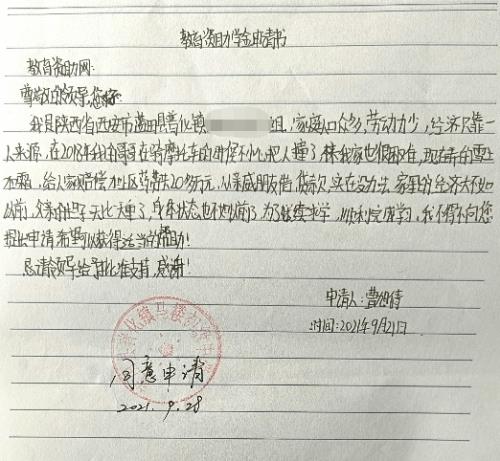 教育资助学金申请书
教育资助网:
尊敬的领导,您好:
我是陕西省西安市蓝田县普化镇 组,家庭人口众多,劳动力少,经济只靠一
人来源,在2018年我的哥哥在骑摩托车的时候不小心把人撞了,本来我家也很困难,现在寿的雪上
加霜,给人家赔偿加上医药费共20多万元,从亲戚朋友借,贷款,实在没办法,家里的经济大不如
以前,父亲的担子一天比一天重了,身体状态也不如以前了,为了继续求学,顺利完成学习,我不得不向您
提出申请希望可以获得适当的资助!
恳请领导给予批准支持,感谢!
申请人:曹旭锜
时间:2021年9月21日.
同意申请
2021.9.28